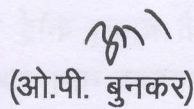 (ओ.पी. बुनकर)